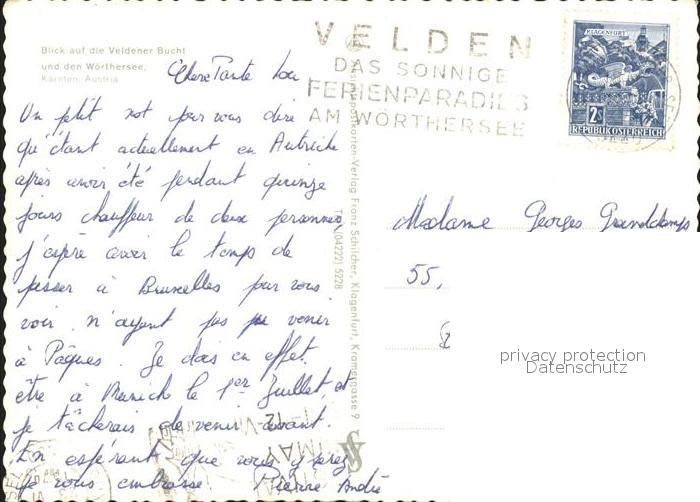 Blick auf die Veldener Bucht
und den Wörthersee.
Kärnten, Austria
VELDEN
DAS SONNIGE
FERIENPARADIES
AM WÖRTHERSEE
KLAGENFURT
2S
REPUBLIK ÖSTERREICH
Chère Tante Lou
Un p'tit mot pour vous dire
qu'étant actuellement en Autriche
après avoir été pendant quinze
jours chauffeur de deux personnes,
j'espère avoir le temps de
passer à Bruxelles pour vous
voir n'ayant pas pu venir
à Pâques. Je dois en effet
être à Munich le 1er Juillet, et
je tâcherais de venir avant.
En espérant que vous y serez
je vous embrasse. Pierre André
Ansichtspostkarten-Verlag Franz Schilcher, Klagenfurt, Kramergasse 9
Tel. (04222) 5228
Madame Georges Grandchamps
55,
privacy protection
Datenschutz